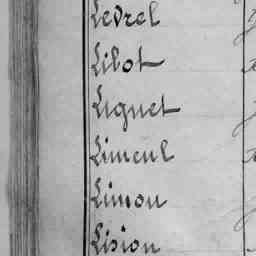 Levrel
Lilot
Liguet
Limeul
Limon
Lision